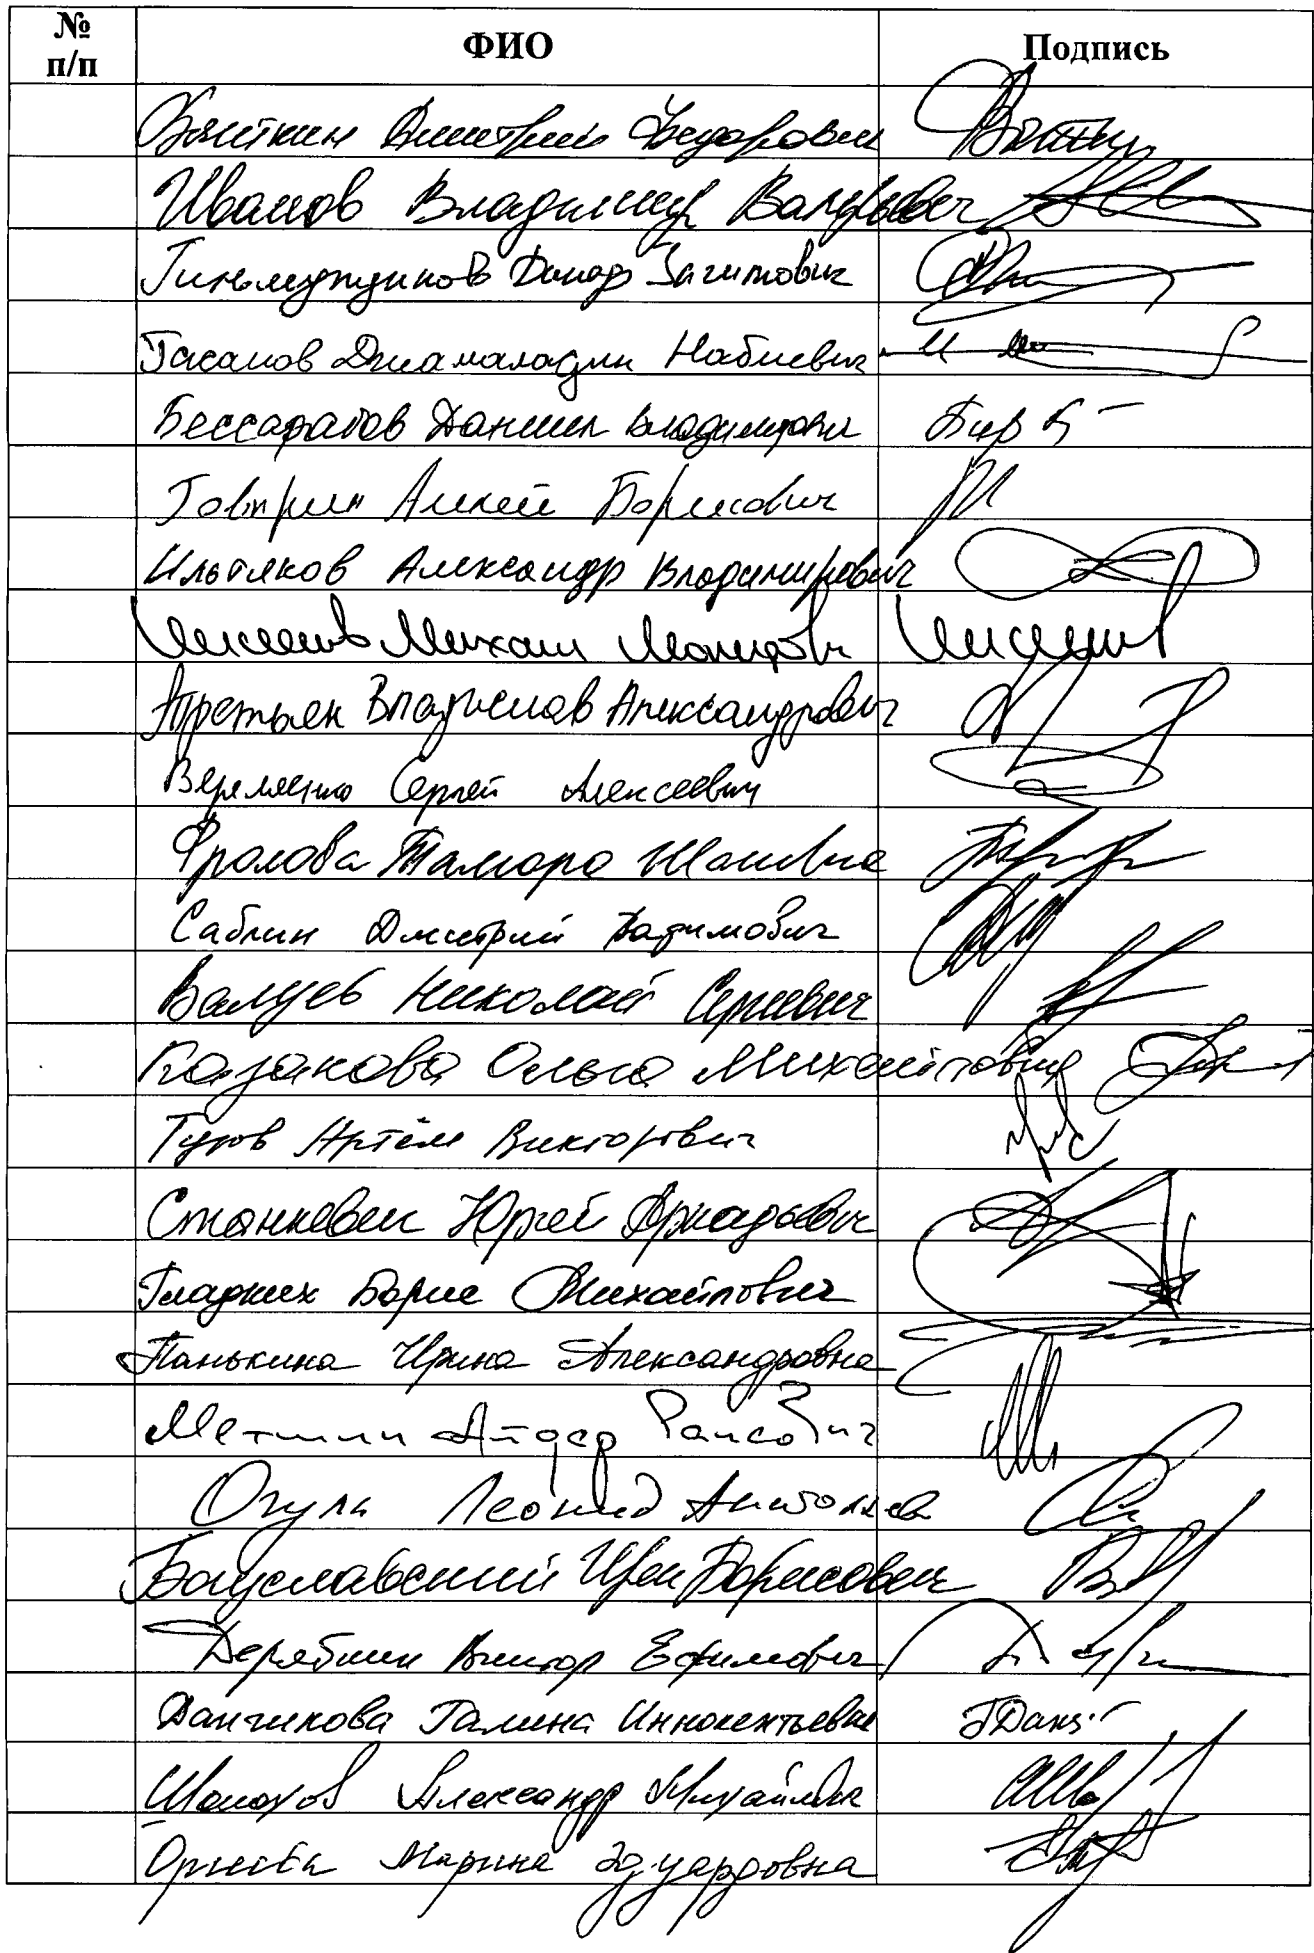 № п/п ФИО Подпись
Вяткин Дмитрий Федорович
Иванов Владимир Валерьевич
Гильмутдинов Динар Загитович
Гасанов Джамаладин Набиевич
Бессарабов Даниил Владимирович
Говырин Алексей Борисович
Ильтяков Александр Владимирович
Михаил
Третьяк Владислав Александрович
Веремеенко Сергей Алексеевич
Фролова Тамара Ивановна
Саблин Дмитрий Вадимович
Валуев Николай Сергеевич
Казакова Ольга Михайловна
Туров Артём Викторович
Станкевич Юрий Аркадьевич
Гладких Борис Михайлович
Панькина Ирина Александровна
Метшин Айдар Раисович
Огуль Леонид Анатольев
Богуславский Ирек Борисович
Дерябкин Виктор Ефимович
Дангикова Галина Иннокентьевна ГДанг
Шолохов Александр Михайлович
Оргеева Марина Эдуардовна